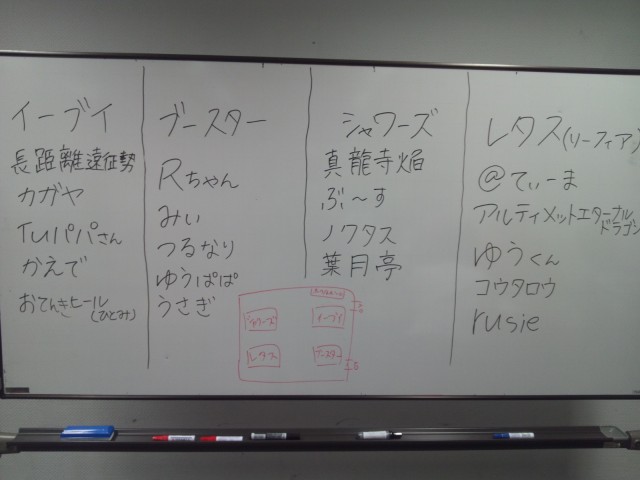 イーブイ
長距離遠征勢
カガヤ
Tuパパさん
かえで
おてんきヒール
(ひとみ)
ブースター
Rちゃん
みぃ
つるなり
ゆうぱぱ
うさぎ
シャワーズ
真龍寺焔
ぶ〜す
ノクタス
葉月亭
レタス(リーフィア)
@てぃーま
アルティメットエターナル
ドラゴン
ゆうくん
コウタロウ
rusie
シャワーズ
イーブイ
レタス
ブースター